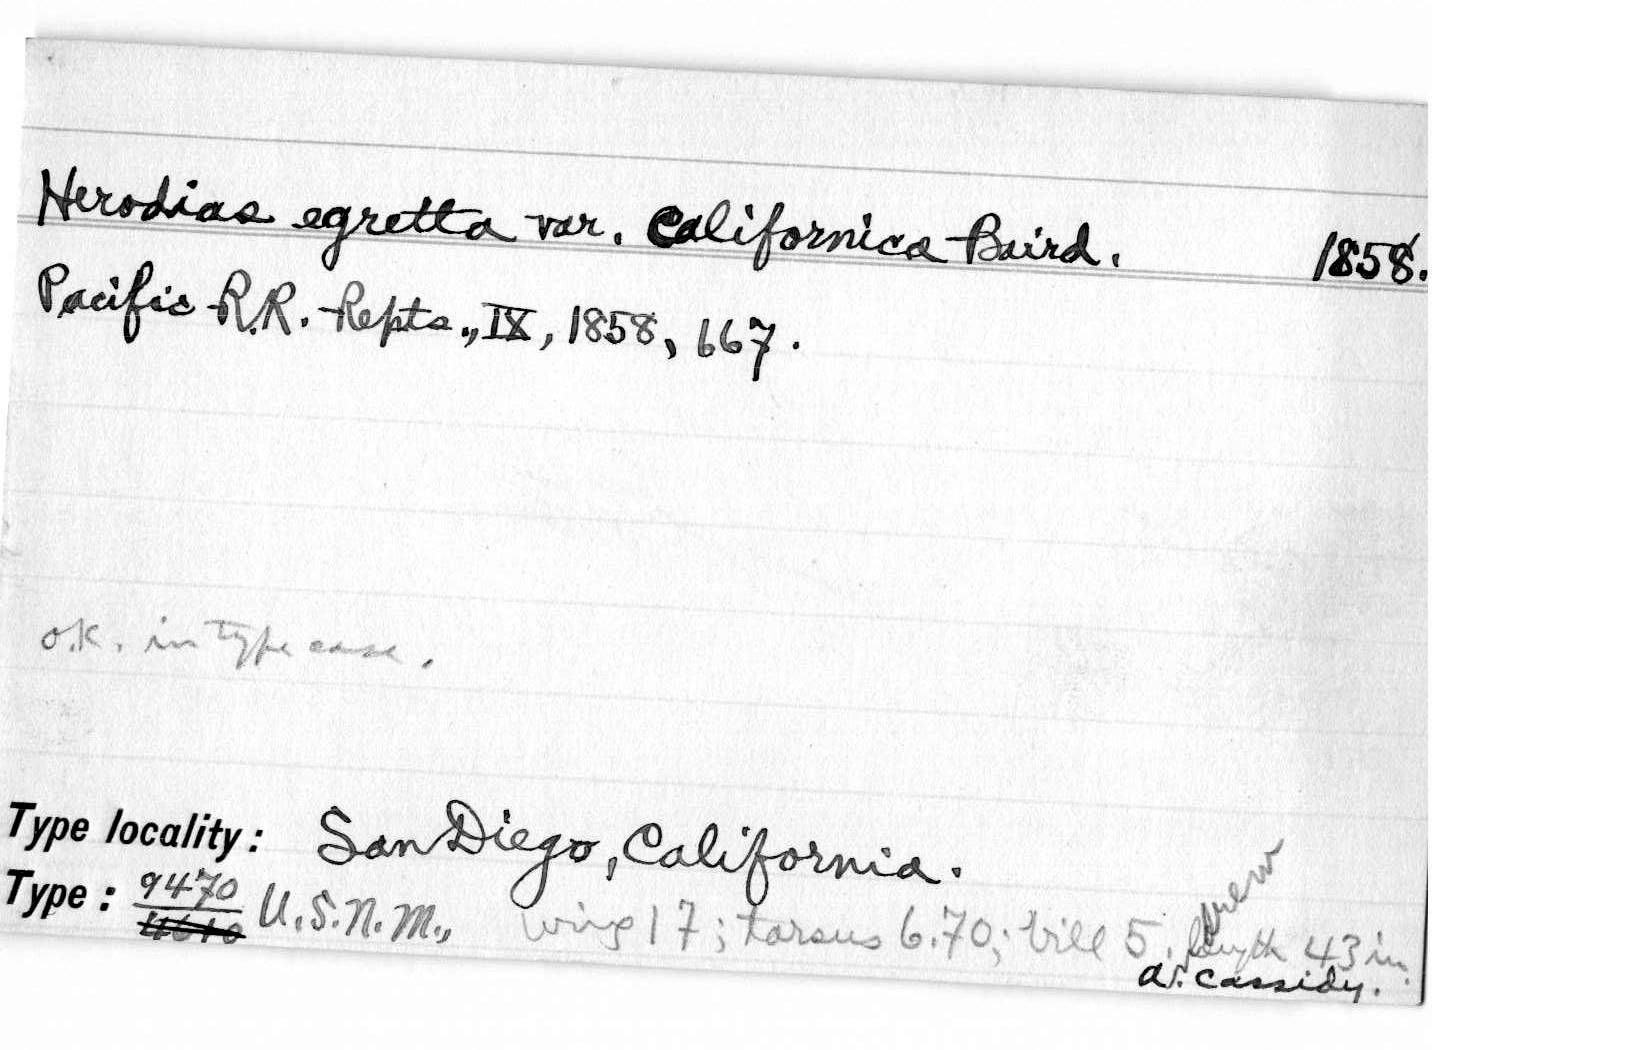 Herodias egretta var. californica Baird. 1858.
Pacific R.R. Repts., IX, 1858, 667.
o.k. in type case.
Type locality: San Diego, California.
Type: 9470 U.S.N.M., wing 17; tarsus 6.70; bill 5. length 43 in.
A. Cassidy.